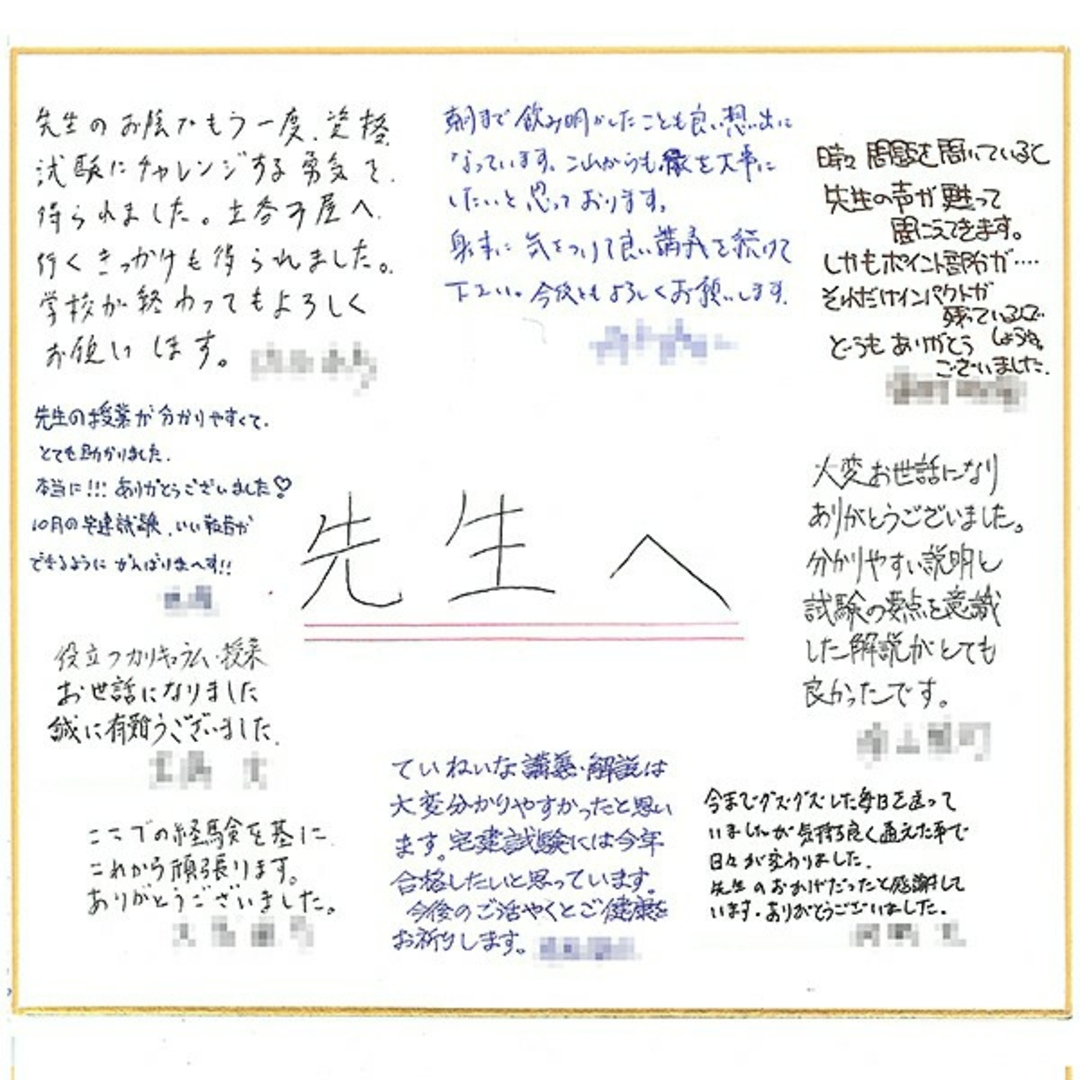 先生のお陰でもう一度、資格
試験にチャレンジする勇気を
得られました。土谷不屋へ
行くきっかけも得られました。
学校が終わってもよろしく
お願いします。
朝まで飲み明かしたことも良い想い出に
なっています。これからも縁を大事に
したいと思っております。
身体に気をつけて良い講義を続けて
下さい。今後ともよろしくお願いします。
時々問題を聞いていると
先生の声が甦って
聞こえてきます。
しかもポイント部分が‥‥
それだけインパクトが
残っているんで
しょうね。
どうもありがとう
ございました。
先生の授業が分かりやすくて、
とても助かりました。
本当に!!!ありがとうございました♡
10月の宅建試験、いい報告が
できるようにがんばりまーす!!
先生へ
大変お世話になり
ありがとうございました。
分かりやすい説明と
試験の要点を意識
した解説がとても
良かったです。
役立つカリキュラム・授業
お世話になりました
誠に有難うございました。
ここでの経験を基に
これから頑張ります。
ありがとうございました。
ていねいな講義・解説は
大変分かりやすかったと思い
ます。宅建試験には今年
合格したいと思っています。
今後のご活やくとご健康を
お祈りします。
今までグズグズした毎日を送って
いましたが気持ち良く通えた事で
日々が変わりました。
先生のおかげだったと感謝して
います。ありがとうございました。